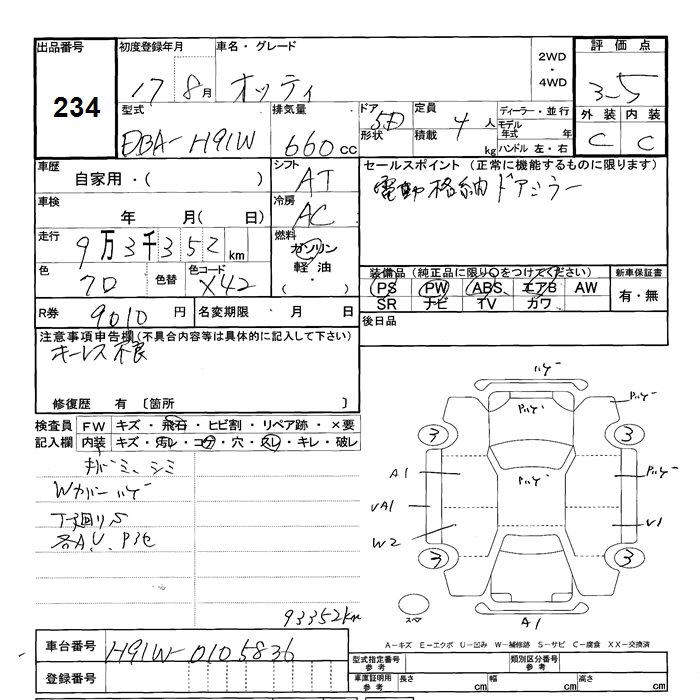 出品番号 初度登録年月 車名・グレード 2WD ・ 4WD 評価点
234 17 8月 オッティ 3.5
型式 排気量 ドア形状 5D 定員 4人 積載 kg ディーラー・並行 モデル年式 年 ハンドル 左・右 外装 内装
DBA-H91W 660cc C C
車歴 自家用・( ) シフト AT セールスポイント (正常に機能するものに限ります)
電動格納ドアミラー
車検 年 月( 日) 冷房 AC
走行 9万3千352km 燃料 ガソリン 軽油 ・( )
色 70 色替 色コード X42
装備品 (純正品に限り○をつけてください) 新車保証書
PS PW ABS エアB AW 有・無
SR ナビ TV カワ
R券 9010円 名変期限 月 日 後日品
注意事項申告欄(不具合内容等は具体的に記入して下さい)
キーレス不良
修復歴 有 〔箇所 〕
検査員記入欄 FW キズ・飛石・ヒビ割・リペア跡・×要
内装 キズ・汚レ・コゲ・穴・スレ・キレ・破レ
シミ
Wカバーハゲ
下廻りS
各A.U.
93352km
ハゲ
ハゲ
3 3
A1
UA1 U1
W2
3 3
スペア A1
A-キズ E-エクボ U-凹み W-補修跡 S-サビ C-腐食 XX-交換済
車台番号 H91W-0105836
型式指定番号 参考 類別区分番号 参考
登録番号 車庫証明用 参考 長さ cm 幅 cm 高さ cm